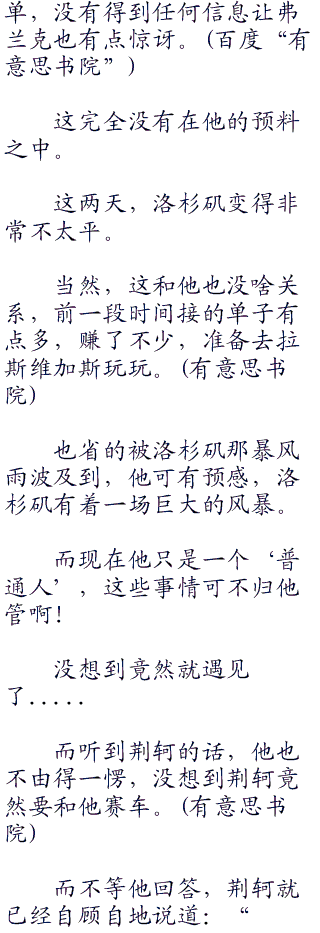 单，没有得到任何信息让弗
兰克也有点惊讶。(百度“有
意思书院”)
这完全没有在他的预料
之中。
这两天，洛杉矶变得非
常不太平。
当然，这和他也没啥关
系，前一段时间接的单子有
点多，赚了不少，准备去拉
斯维加斯玩玩。(有意思书
院)
也省的被洛杉矶那暴风
雨波及到，他可有预感，洛
杉矶有着一场巨大的风暴。
而现在他只是一个‘普
通人’，这些事情可不归他
管啊！
没想到竟然就遇见
了.....
而听到荆轲的话，他也
不由得一愣，没想到荆轲竟
然要和他赛车。(有意思书
院)
而不等他回答，荆轲就
已经自顾自地说道：“